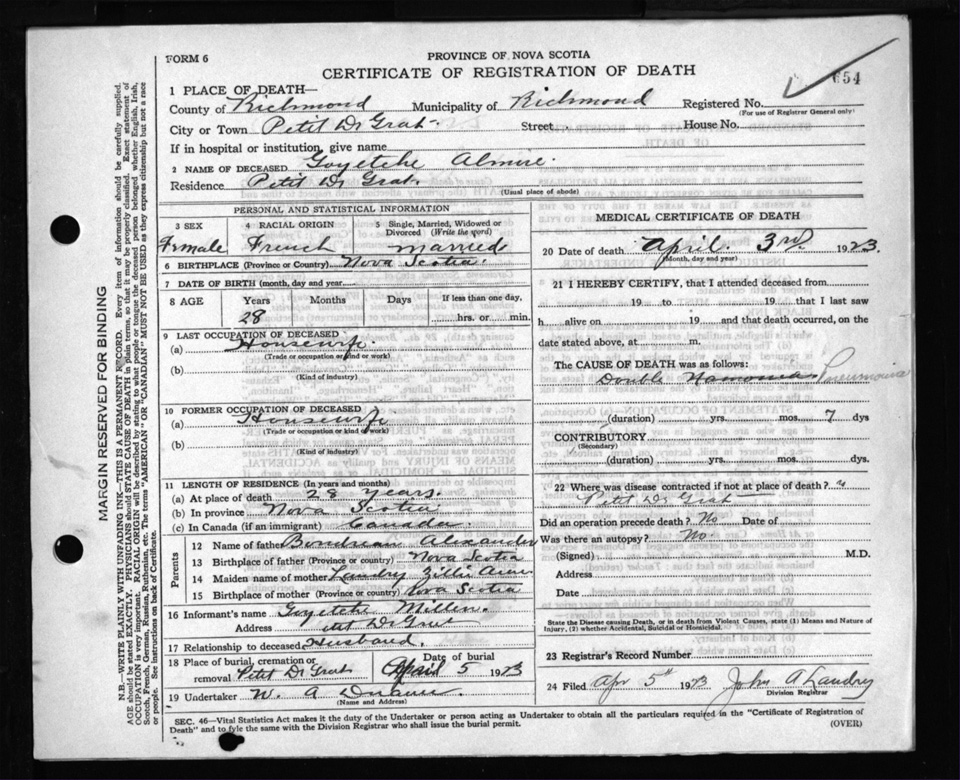 FORM 6
PROVINCE OF NOVA SCOTIA
CERTIFICATE OF REGISTRATION OF DEATH
654
1 PLACE OF DEATH—
County of Richmond Municipality of Richmond Registered No.
(For use of Registrar General only)
City or Town Petit De Grat Street House No.
If in hospital or institution, give name
2 NAME OF DECEASED Goyetche Almire
Residence Petit De Grat
(Usual place of abode)
PERSONAL AND STATISTICAL INFORMATION
3 SEX 4 RACIAL ORIGIN 5 Single, Married, Widowed or Divorced (Write the word)
Female French married
6 BIRTHPLACE (Province or Country) Nova Scotia
7 DATE OF BIRTH (month, day and year)
8 AGE Years Months Days If less than one day,
28 hrs. or min.
9 LAST OCCUPATION OF DECEASED
(a) Housewife
(Trade or occupation or kind or work)
(b)
(Kind of industry)
10 FORMER OCCUPATION OF DECEASED
(a) Housewife
(Trade or occupation or kind o work)
(b)
(Kind of industry)
11 LENGTH OF RESIDENCE (In years and months)
(a) At place of death 28 years.
(b) In province Nova Scotia
(c) In Canada (if an immigrant) Canada
Parents
12 Name of father Boudreau Alexander
13 Birthplace of father (Province or Country) Nova Scotia
14 Maiden name of mother Landry Zillie
15 Birthplace of mother (Province or country) Nova Scotia
16 Informant's name Goyetche Millen
Address Petit De Grat
17 Relationship to deceased Husband
18 Place of burial, cremation or removal Petit De Grat Date of burial April 5 1923
19 Undertaker W. A
(Name and Address)
MEDICAL CERTIFICATE OF DEATH
20 Date of death April 3rd 1923
(Month, day and year)
21 I HEREBY CERTIFY, that I attended deceased from
19 to 19 that I last saw
h alive on 19 and that death occurred, on the
date stated above, at m.
The CAUSE OF DEATH was as follows:
Double Namonia Pneumonia
(duration) yrs. mos. 7 dys
CONTRIBUTORY
(Secondary)
(duration) yrs. mos. dys.
22 Where was disease contracted if not at place of death?
Petit De Grat
Did an operation precede death? No Date of
Was there an autopsy? No
(Signed) M.D.
Address
Date
State the Disease causing Death, or in death from Violent Causes, state (1) Means and Nature of Injury, (2) whether Accidental, Suicidal or Homicidal.
23 Registrar's Record Number
24 Filed Apr 5th 1923 John A Landry
Division Registrar
SEC. 46—Vital Statistics Act makes it the duty of the Undertaker or person acting as Undertaker to obtain all the particulars required in the "Certificate of Registration of
Death" and to fyle the same with the Division Registrar who shall issue the burial permit.
(OVER)
MARGIN RESERVED FOR BINDING
N.B.—WRITE PLAINLY WITH UNFADING INK—THIS IS A PERMANENT RECORD. Every item of information should be carefully supplied.
AGE should be stated EXACTLY. PHYSICIANS should STATE CAUSE OF DEATH in plain terms, so that it may be properly classified. Exact statement of
OCCUPATION is very important. RACIAL ORIGIN will be described by stating to what people or tongue the deceased person belonged whether English, Irish,
Scotch, French, German, Russian, Ruthenian, etc. The terms "AMERICAN" OR "CANADIAN" MUST NOT BE USED as they express citizenship but not a race
or people. See instructions on back of Certificate.